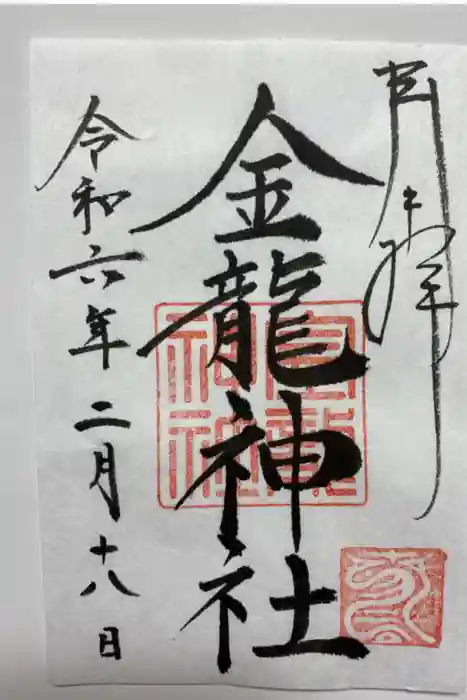 奉拝
金龍神社
令和六年二月十八日